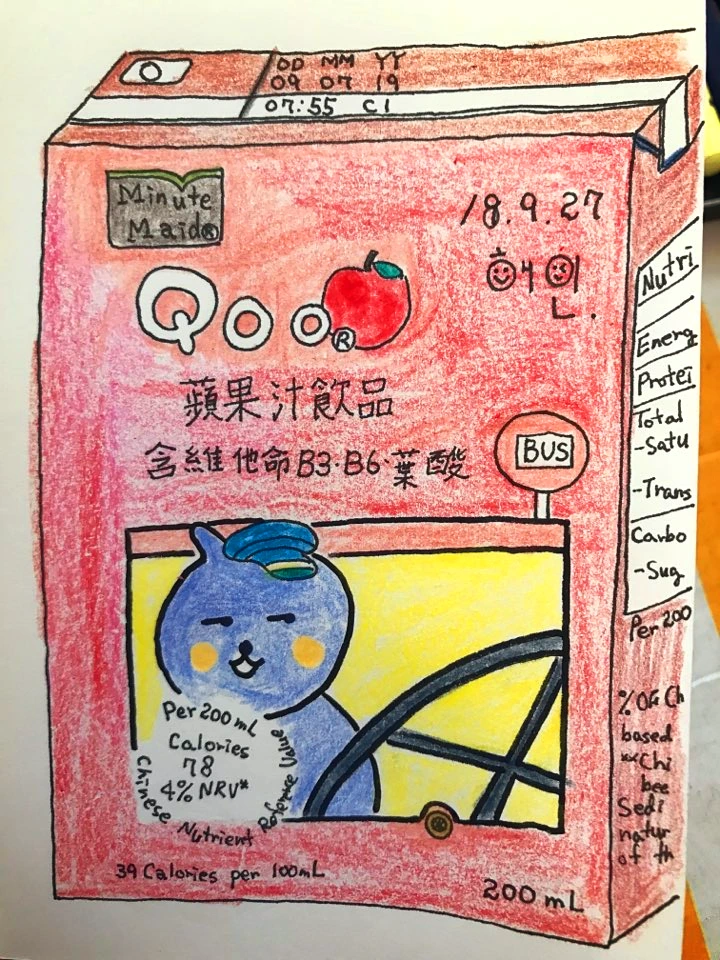 DD MM YY
09 07 19
07:55 C1
Minute
Maid®
18.9.27
해인
Qoo®
蘋果汁飲品
含維他命B3·B6·葉酸
BUS
Per 200 mL
Calories
78
4% NRV*
Chinese Nutrient Reference Value
39 Calories per 100mL
200 mL
Nutri
Energ
Protei
Total
-Satu
-Trans
Carbo
-Sug
Per 200
% Of Ch
based
**Chi
bee
Sedi
natur
of th